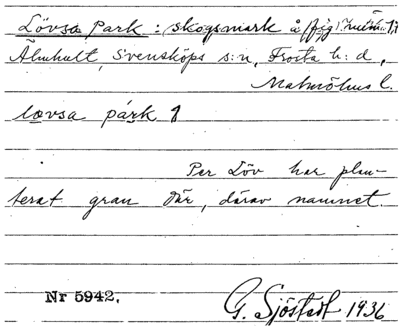 Lövsa Park: skogsmark å
Älmhult, Svensköps s:n, Frosta h:d,
Malmöhus l.
lovsa park
Per Löv har plan-
terat gran där, därav namnet.
Nr 5942.
G. Sjöstedt 1936